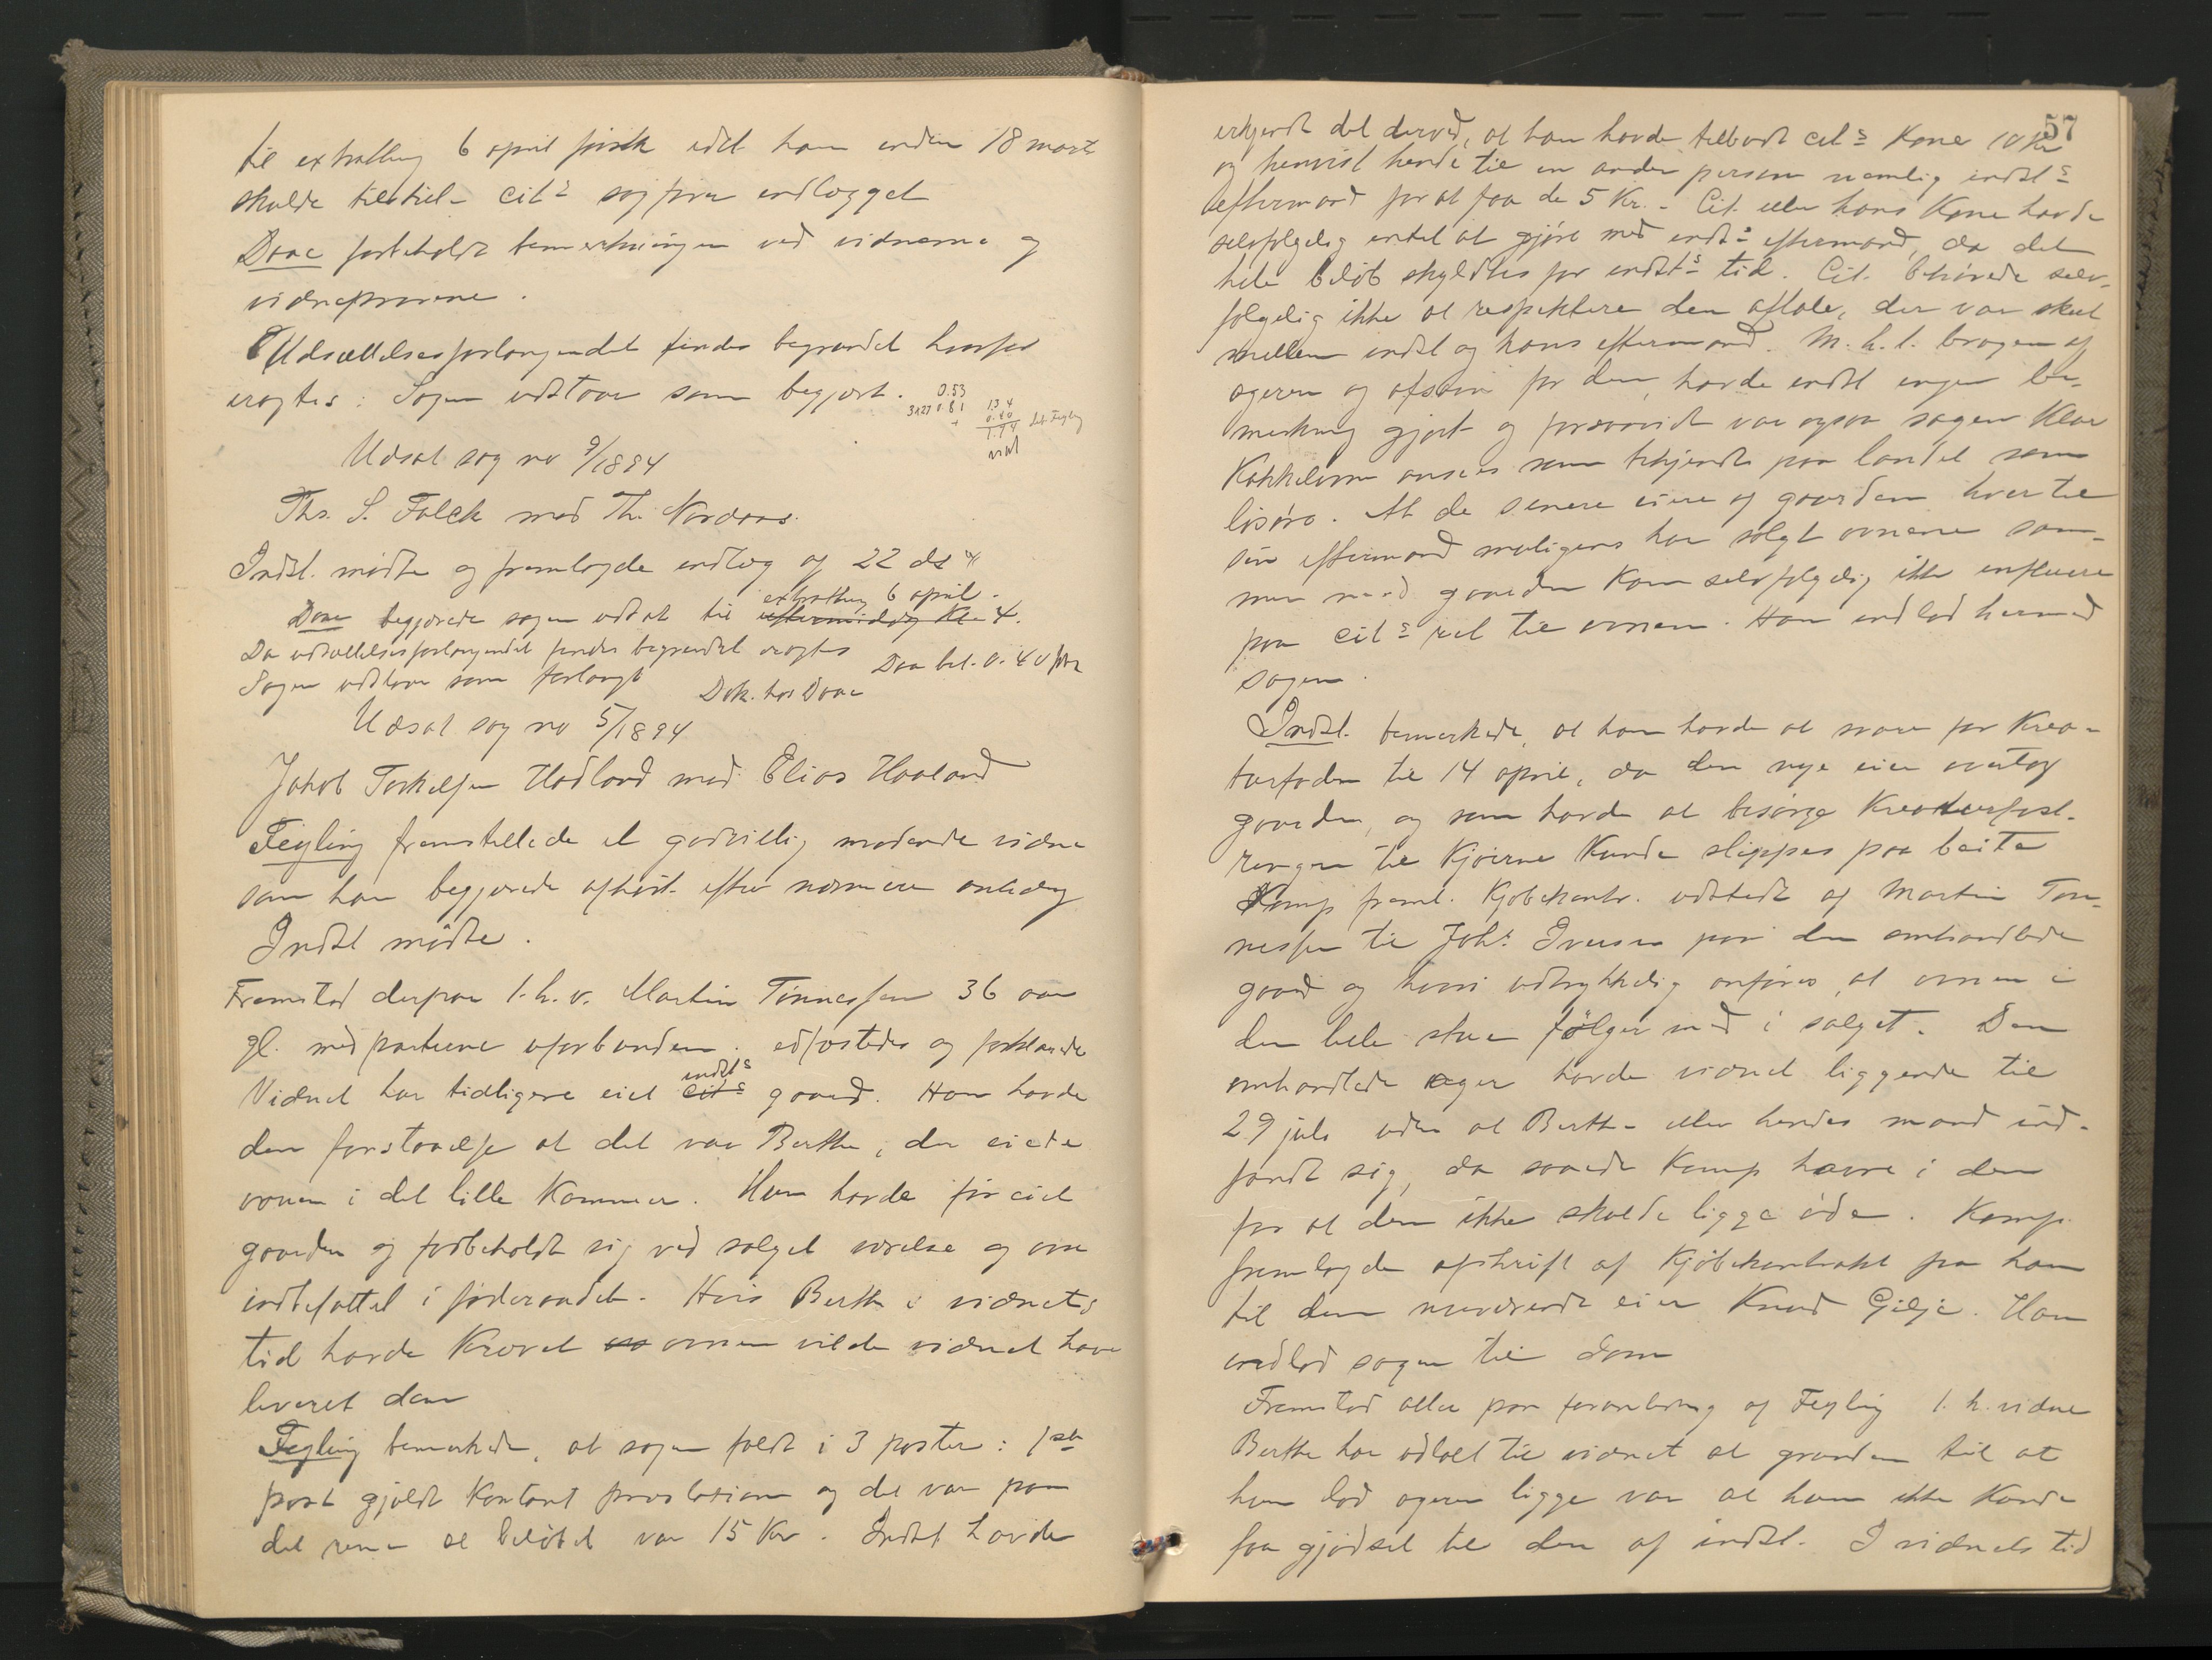 til extratting 6 april förstk idet han inden 18 marts
skulde tilstil- cit.s sagfører indlægget
Daae forbeholdt bemerkninger ved vidnerne og
vidneprovene.
Udsættelsesforlangendet findes begrundet hvorfor
eragtes: Sagen udstaar som begjært.
0.53
3127 0.81
1.34
0.40
1.74
bet. Feyling
Udsat sag no 9/1894
Ths. S. Falck mod Th. Nordaas.
Indst. mödte og fremlagde indlæg af 22 ds
Daae begjærede sagen udsat til eftermiddag Kl. 4. extratting 6 april.
Da udsættelsesforlangendet findes begrundet eragtes
Sagen udstaar som forlangt
Daa bet. 0.40 för
Dok. hos Daae
Udsat sag no 5/1894
Jakob Torkelsen Hadland mod Elias Haaland
Feyling fremstillede et godvillig mødende vidne
som han begjærede afhört efter nærmere anledning
Indst mödte.
Fremstod derpaa 1.h.v. Martin Tönnessen 36 aar
gl. med parterne uforbunden. edfæstedes og forklarede
Vidnet har tidligere eiet cit.s indst.s gaard. Han havde
den forstaaelse at det var Berthe, der eiede
ovnen i det lille Kammer. Hun havde för eiet
gaarden og forbeholdt sig ved salget værelse og ovn
indbefattet i föderaadet. Hvis Berthe i vidnets
tid havde Krævet ovnen vilde vidnet have
leveret den
Feyling bemerkede, at sagen faldt i 3 poster: 1ste
post gjaldt Kontant præstation og det var paa
det rene at belöbet var 15 Kr. Indst havde
57
erkjendt det derved, at han havde tilbudt cit.s Kone 10 Kr
og henvist hende til en anden person nemlig indst.s
eftermand for at faa de 5 Kr. - Cit. eller hans Kone havde
selvfølgelig intet at gjöre med indst.s eftermand, da det
hele belöb skyldtes for indst.s tid. Cit. behövede selv-
følgelig ikke at respektere den aftale, der var skeet
mellem indst og hans eftermand. M.h.t. brugen af
ageren og afsavn for den, havde indst ingen be-
merkning gjort og forsaavidt var ogsaa sagen Klar
Kakkelovne ansees som bekjendt paa landet som
lösöre. At de senere eiere af gaarden hver til
sin eftermand muligens har solgt ovnene sam-
men med gaarden Kan selvfølgelig ikke influere
paa cit.s ret til ovnen. Han indlod hermed
sagen.
Indst. bemerkede, at han havde at svare for Krea-
turfoden til 14 april, da den nye eier overtog
gaarden, og som havde at besörge Kreaturfost-
ringen til Kjöerne Kunde slippes paa beite
Kamp freml. Kjøbekontr. udstedt af Martin Tön-
nessen til Joh.s Iversen paa den omhandlede
gaard og hvori udtrykkelig anföres, at ovnen i
den hele stue fölger med i salget. Den
omhandlede ager havde vidnet liggende til
29 juli uden at Berthe eller hendes mand ind-
fandt sig, da saaede Kamp havre i den
for at den ikke skulde ligge öde. Kamp
fremlagde afskrift af Kjöbekontrakt fra ham
til den nuværende eier Knud Gilje. Han
indlod sagen til dom
Fremstod atter paa foranledning af Feyling 1.h. vidne
Berthe har udtalt til vidnet at grunden til at
hun lod ageren ligge var at hun ikke Kunde
faa gjödsel til den af indst. I vidnets tid